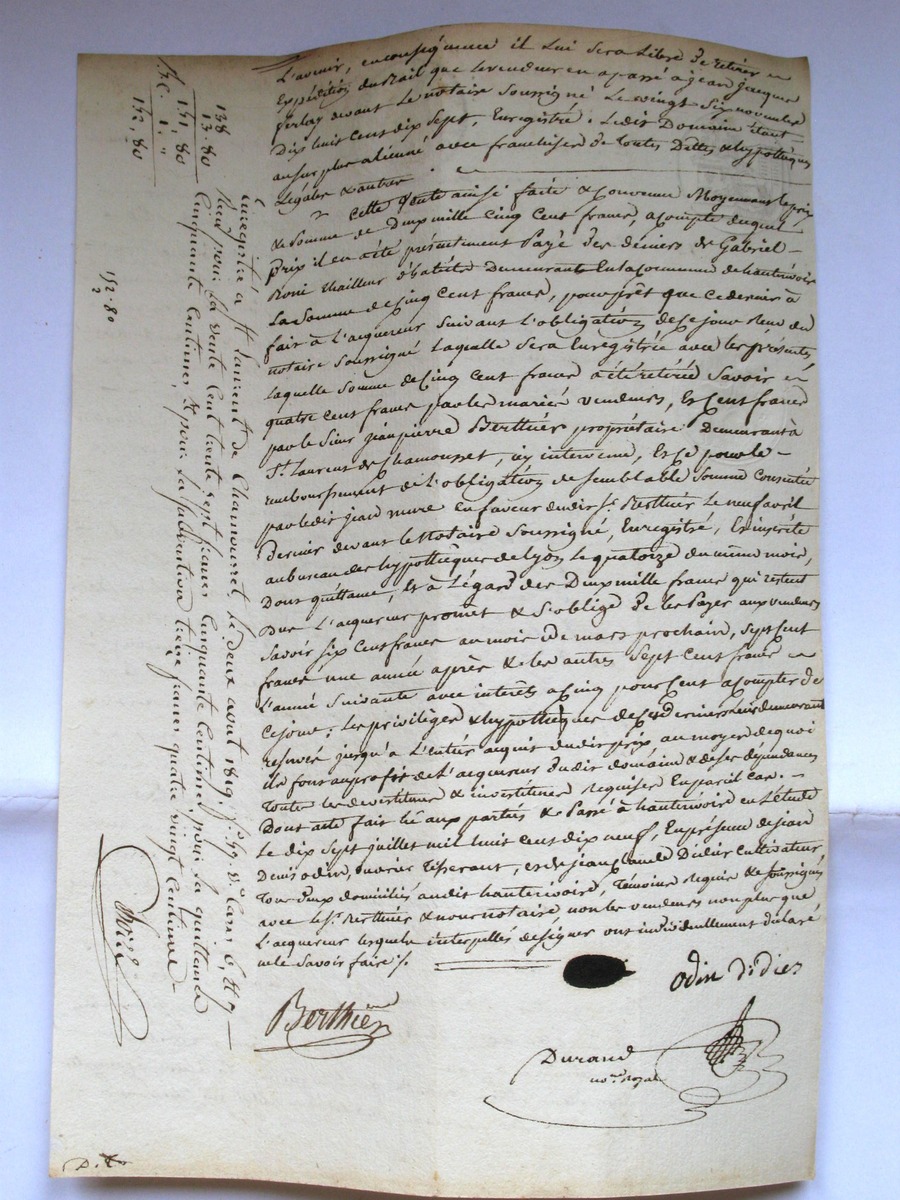 L'avenir, en conséquence il lui sera libre de retirer
Expédition du Bail que le vendeur en a passé à jean jacques
devant le notaire Soussigné Le vingt Six novembre
Dix huit cent dix Sept, Enregistré. Ledit Domaine Etant
au surplus aliené avec franchises de toutes Dettes & hypothèques
Légales & autres.
Cette Vente ainsi faite & Convenue Moyennant le prix
& Somme de Deux mille Cinq Cent francs, a compte duquel
prix il en a été présentement Payé des deniers de Gabriel
Demeurant En la Commune de hauterivoire
La Somme de Cinq Cent francs, pour prêt que ce dernier à
fait à L'acquereur Suivant L'obligation de ce jour Reçu du
notaire Soussigné Laquelle Sera Enregistrée avec les présentes
laquelle Somme de Cinq Cent francs a été retirée Savoir
quatre Cent francs par les mariés vendeurs, Et Cent francs
par le Sieur jean pierre Berthier propriétaire Demeurant à
St. Laurent de Chamousset, icy intervenu, Et ce pour le
remboursement de L'obligation de Semblable Somme Consentie
par ledit jean mure En faveur dudit Sr. Berthier Le neuf avril
Dernier devant le Notaire Soussigné, Enregistré, Et inscrite
au bureau des hypothèques de Lyon le quatorze du même mois,
Dont quittance, Et à L'égard des Deux mille francs qui restent
Dus L'acquereur promet & S'oblige de les Payer aux vendeurs
Savoir Six Cent francs au mois de mars prochain, Sept Cent
francs une année après & les autres Sept Cent francs
L'année Suivante avec intérêts a Cinq pour Cent a Compter de
ce jour; Les priviléges & hypothèques de Ces Derniers Leurs demeurant
reservés jusqu'à L'entier acquit dudit prix, au moyen de quoi
ils font au profit de L'acquereur dudit domaine & de ses dépendances
toutes les devestitures & investitures requises En pareil Cas.
Dont acte fait lû aux parties & Passé à hauterivoire en L'étude
Le dix Sept juillet mil huit Cent dix neuf, En présence de jean
Denis odin, ouvrier tisserant, et de jean Claude Didier Cultivateur
Tous Deux domiciliés audit hauterivoire, témoins requis & Soussignés
avec le Sr. Berthier & nous notaire, non les vendeurs non plus que
L'acquereur lesquels interpellés de signer ont individuellement déclaré
ne le Savoir faire ./.
odin Didier
Berthier
Durand
no.re Royal
Enregistré à St Laurent de Chamousset le deux aout 1819
Reçu pour la Vente Cent trente sept francs Cinquante Centimes, pour la quittance
Cinquante Centimes, & pour la Subvention treize francs quatre vingt Centimes
138
13.80
151,80
1,,
152,80
152.80